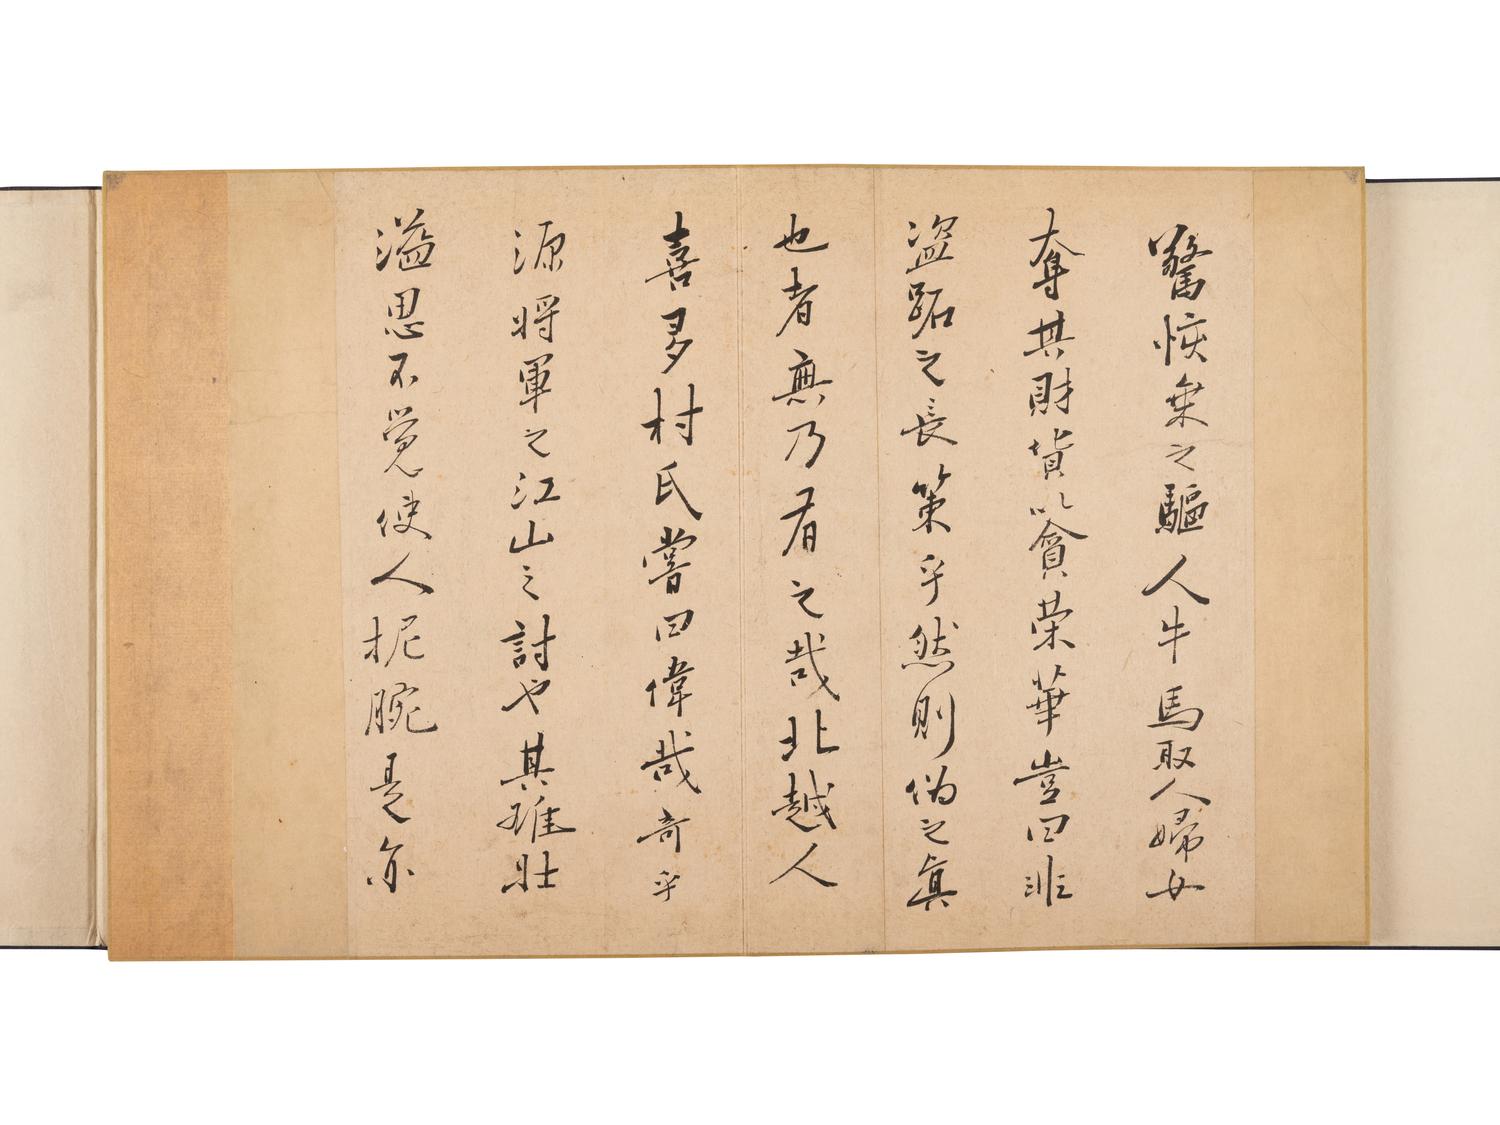 驚恢乗之驅人牛馬取人婦女
奪其財貨以貪荣華豈曰非
盗跖之長策乎然則偽之真
也者無乃有之哉北越人
喜多村氏嘗曰偉哉奇乎
源将軍之江山之討也其雄壮
溢思不覚使人扼腕是亦